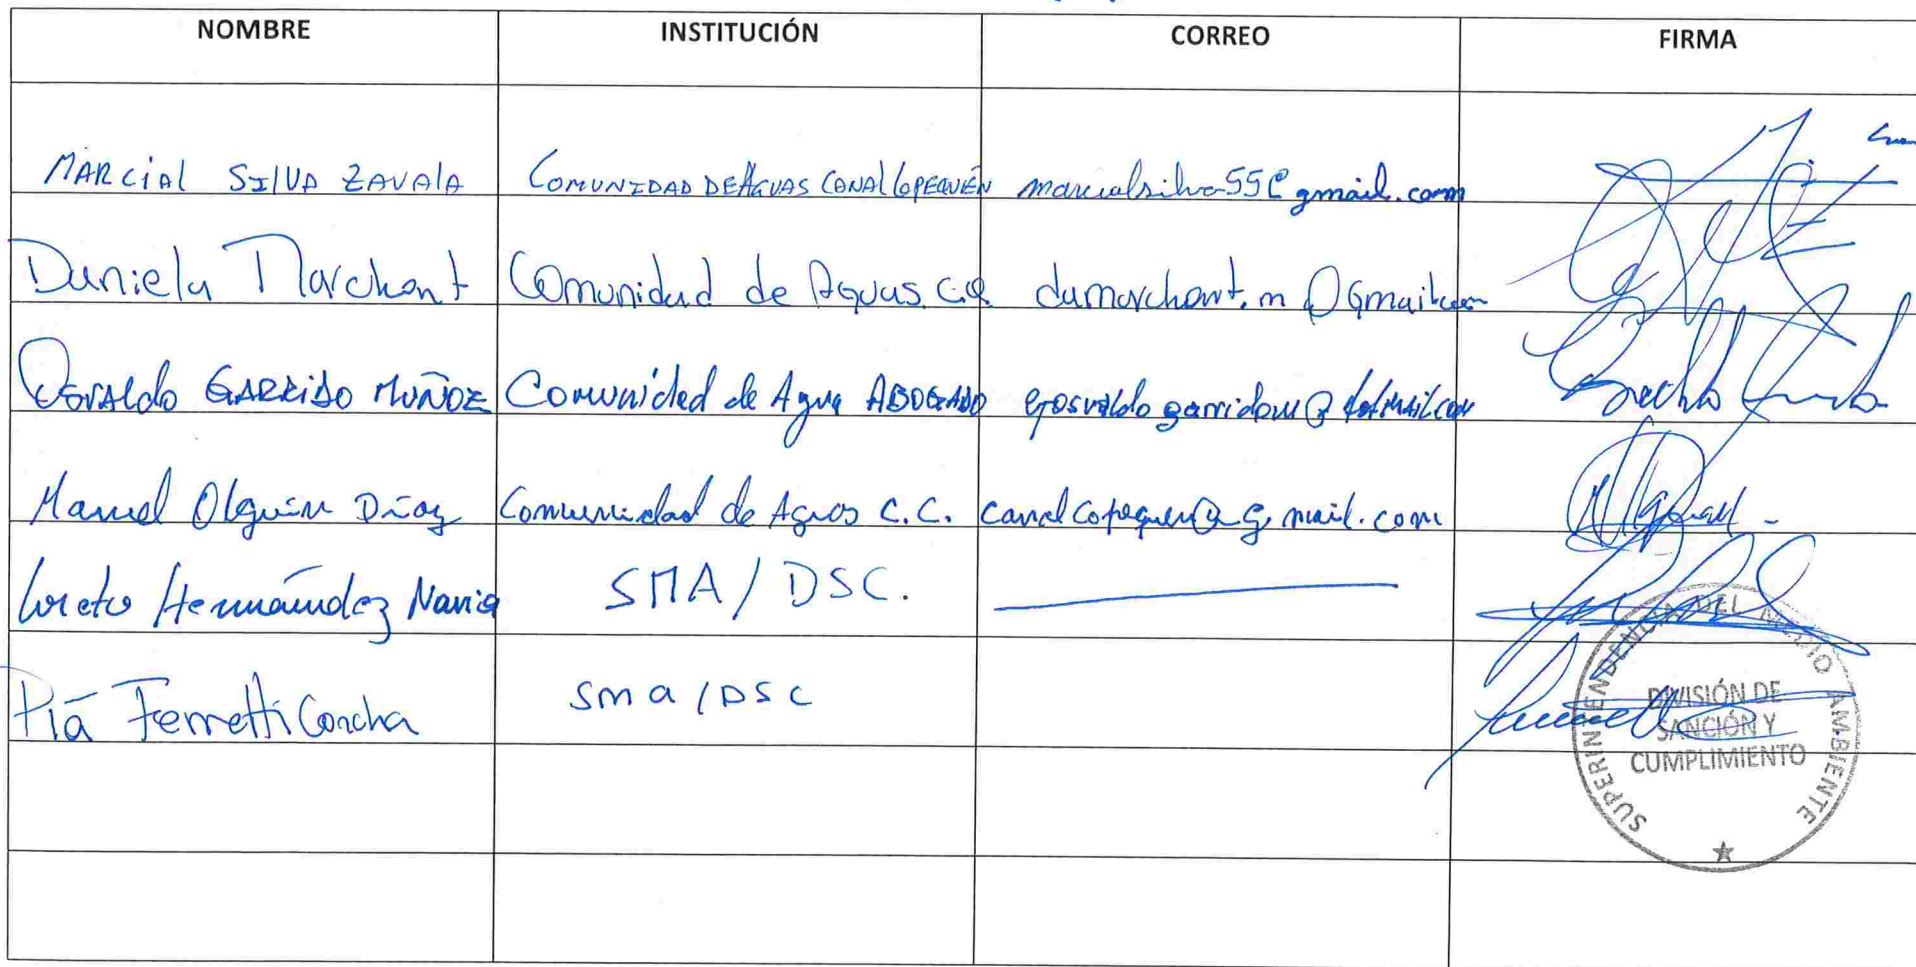 NOMBRE INSTITUCIÓN CORREO FIRMA
MARCIAL SILVA ZAVALA COMUNIDAD DE AGUAS CANAL COPEQUÉN marcialsilva55@gmail.com
Daniela Marchant Comunidad de Aguas C.Q. damarchant.m@Gmail.com
Osvaldo GARRIDO MUÑOZ Comunidad de Agua ABOGADO
Manuel Olguín Díaz Comunidad de Aguas C.C. canalcopequen@g,mail.com
Loreto Hernández Navia SMA/DSC.
Pía Ferretti Concha sma/DSC
SUPERINTENDENCIA DEL MEDIO AMBIENTE
DIVISIÓN DE
SANCIÓN Y
CUMPLIMIENTO